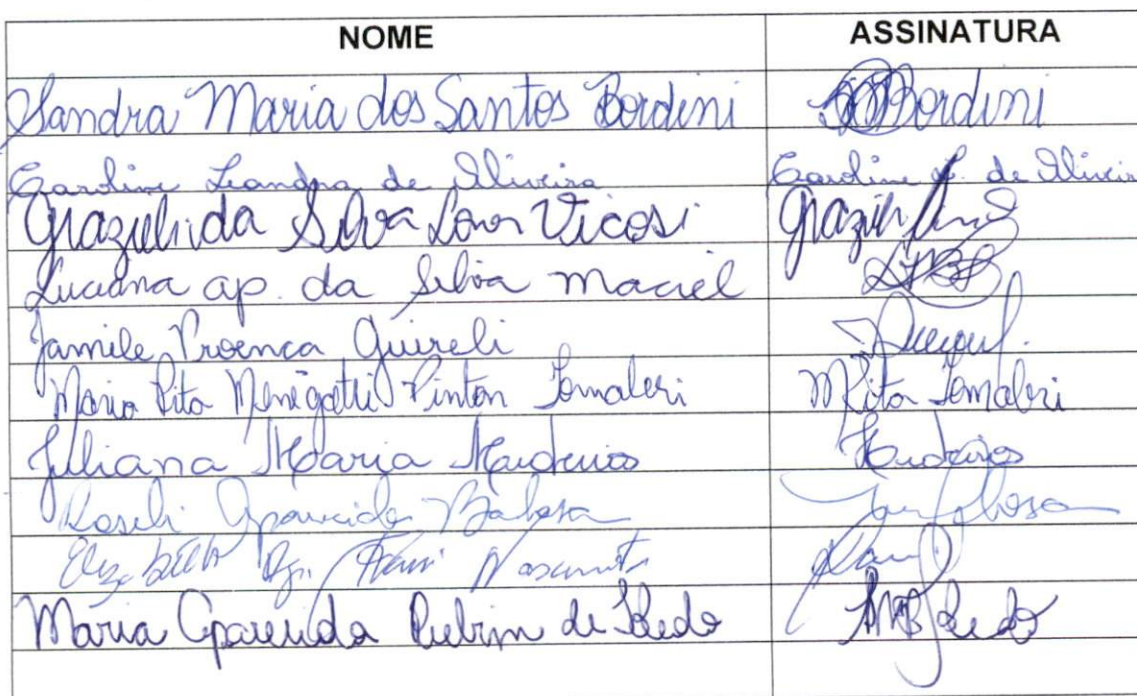 NOME ASSINATURA
Sandra Maria dos Santos Bordini Bordini
Caroline Leandra de Oliveira Caroline L. de Oliveira
Grazieli da Silva Vicosi Grazieli
Luciana ap. da Silva Maciel
Jamile Proenca Quireli
Maria Rita Menegatti Pinton Tomaleri M Rita Tomaleri
Juliana Maria Medeiros Medeiros
Roseli Aparecida Barbosa
Elizabeth Ap. Nascimento
Maria Aparecida Rubim de Toledo